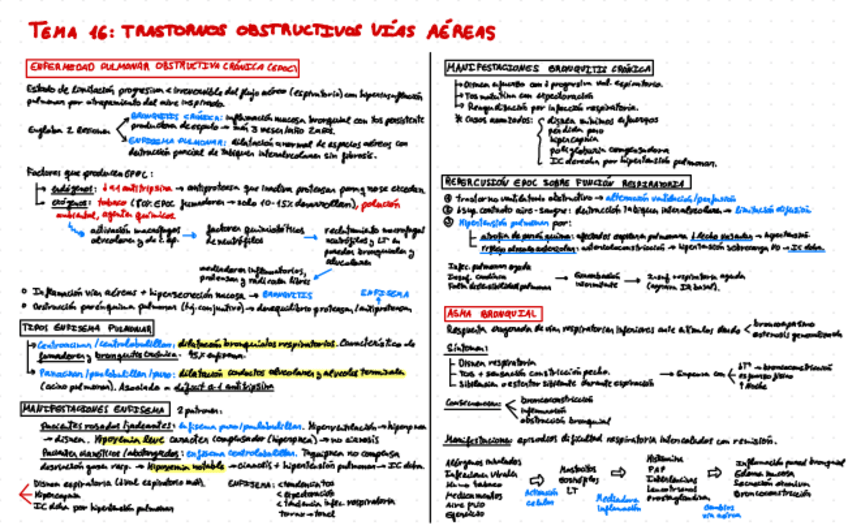 TEMA 16: TRASTORNOS OBSTRUCTIVOS VÍAS AÉREAS
ENFERMEDAD PULMONAR OBSTRUCTIVA CRÓNICA (EPOC)
Estado de limitación progresiva e irreversible del flujo aéreo (espiratorio) con hiperinsuflación
pulmonar por atrapamiento del aire inspirado.
Engloba 2
BRONQUITIS CRÓNICA: inflamación mucosa bronquial con tos persistente
productora de esputo → más 3 meses/año 2 años.
ENFISEMA PULMONAR: dilatación anormal de espacios aéreos con
destrucción parcial de tabiques interalveolares sin fibrosis.
Factores que producen EPOC:
endógenos: antitripsina → antiproteasa que inactiva proteasas para q no se excedan
exógenos: tabaco fumadores → solo 10-15% desarrollan), polución
ambiental, agentes químicos
activación macrófagos
alveolares y de
→ factores quimiotácticos
de neutrófilos
→ reclutamiento macrófagos
neutrófilos y LT en
paredes bronquiales y
alveolares
mediadores inflamatorios,
proteasas y radicales libres
Inflamación vías aéreas + hipersecreción mucosa → BRONQUITIS
ENFISEMA
destrucción parénquima pulmonar (tej. conjuntivo) → desequilibrio proteasas/antiproteasas
TIPOS ENFISEMA PULMONAR
dilatación bronquiolos respiratorios. Característico de
fumadores y bronquitis crónica. 95% enfisema.
dilatación conductos alveolares y alveolos terminales
(acino pulmonar). Asociado a déficit α-1 antitripsina
MANIFESTACIONES ENFISEMA 2 patrones:
Pacientes rosados (jadeantes): enfisema Hiperventilación → hiperpnea
→ disnea. Hipoxemia leve carácter compensador (hiperpnea) → no cianosis
Pacientes cianóticos (abotargados): enfisema centrolobulillar. Taquipnea no compensa
→ Hipoxemia notable → cianosis + hipertensión pulmonar → IC dcha.
Disnea espiratoria
Hipercapnia
IC dcha por hipertensión pulmonar
ENFISEMA:
expectoración
tendencia infec. respiratoria
tórax → tonel
MANIFESTACIONES BRONQUITIS CRÓNICA
Disnea esfuerzo con ↓ progresiva vol. espiratorio.
Tos matutina con expectoración
Reagudización por infección respiratoria.
* Casos avanzados:
disnea mínimos esfuerzos
pérdida peso
hipercapnia
poliglobulia compensadora
IC derecha por hipertensión pulmonar.
REPERCUSIÓN EPOC SOBRE FUNCIÓN RESPIRATORIA
① trastorno ventilatorio obstructivo → alteración ventilación/perfusión
② ↓sup. contacto aire-sangre: destrucción tabiques interalveolares → limitación difusión
③ Hipertensión pulmonar por:
atrofia de parénquima: afectados capilares pulmonares ↓ lecho vascular → hipertensión
arterioloconstricción → hipertensión sobrecarga VD → IC dcha.
Infec. pulmonar aguda
Insuf. cardíaca
→
→ insuf. respiratoria aguda
ASMA BRONQUIAL
Respuesta exagerada de vías respiratorias inferiores ante estímulos dando
broncoespasmo
estenosis generalizada
Síntomas:
Disnea respiratoria
Tos + sensación constricción pecho.
Sibilancia o estertor sibilante durante espiración
→ Empeora con
↓T° → broncoconstricción
esfuerzo físico
Noche
Consecuencias:
broncoconstricción
inflamación
obstrucción bronquial
Manifestaciones: episodios dificultad respiratoria intercalados con remisión.
Alérgenos inhalados
Infecciones virales
Humo tabaco
Medicamentos
Aire frío
Ejercicio
Activación
celular
Mastocitos
eosinófilos
LT
Mediadores
inflamación
Histamina
PAF
Interleucinas
Leucotrienos
Prostaglandinas
Cambios
vía aérea
Inflamación pared bronquial
Edema mucosa
Broncoconstricción